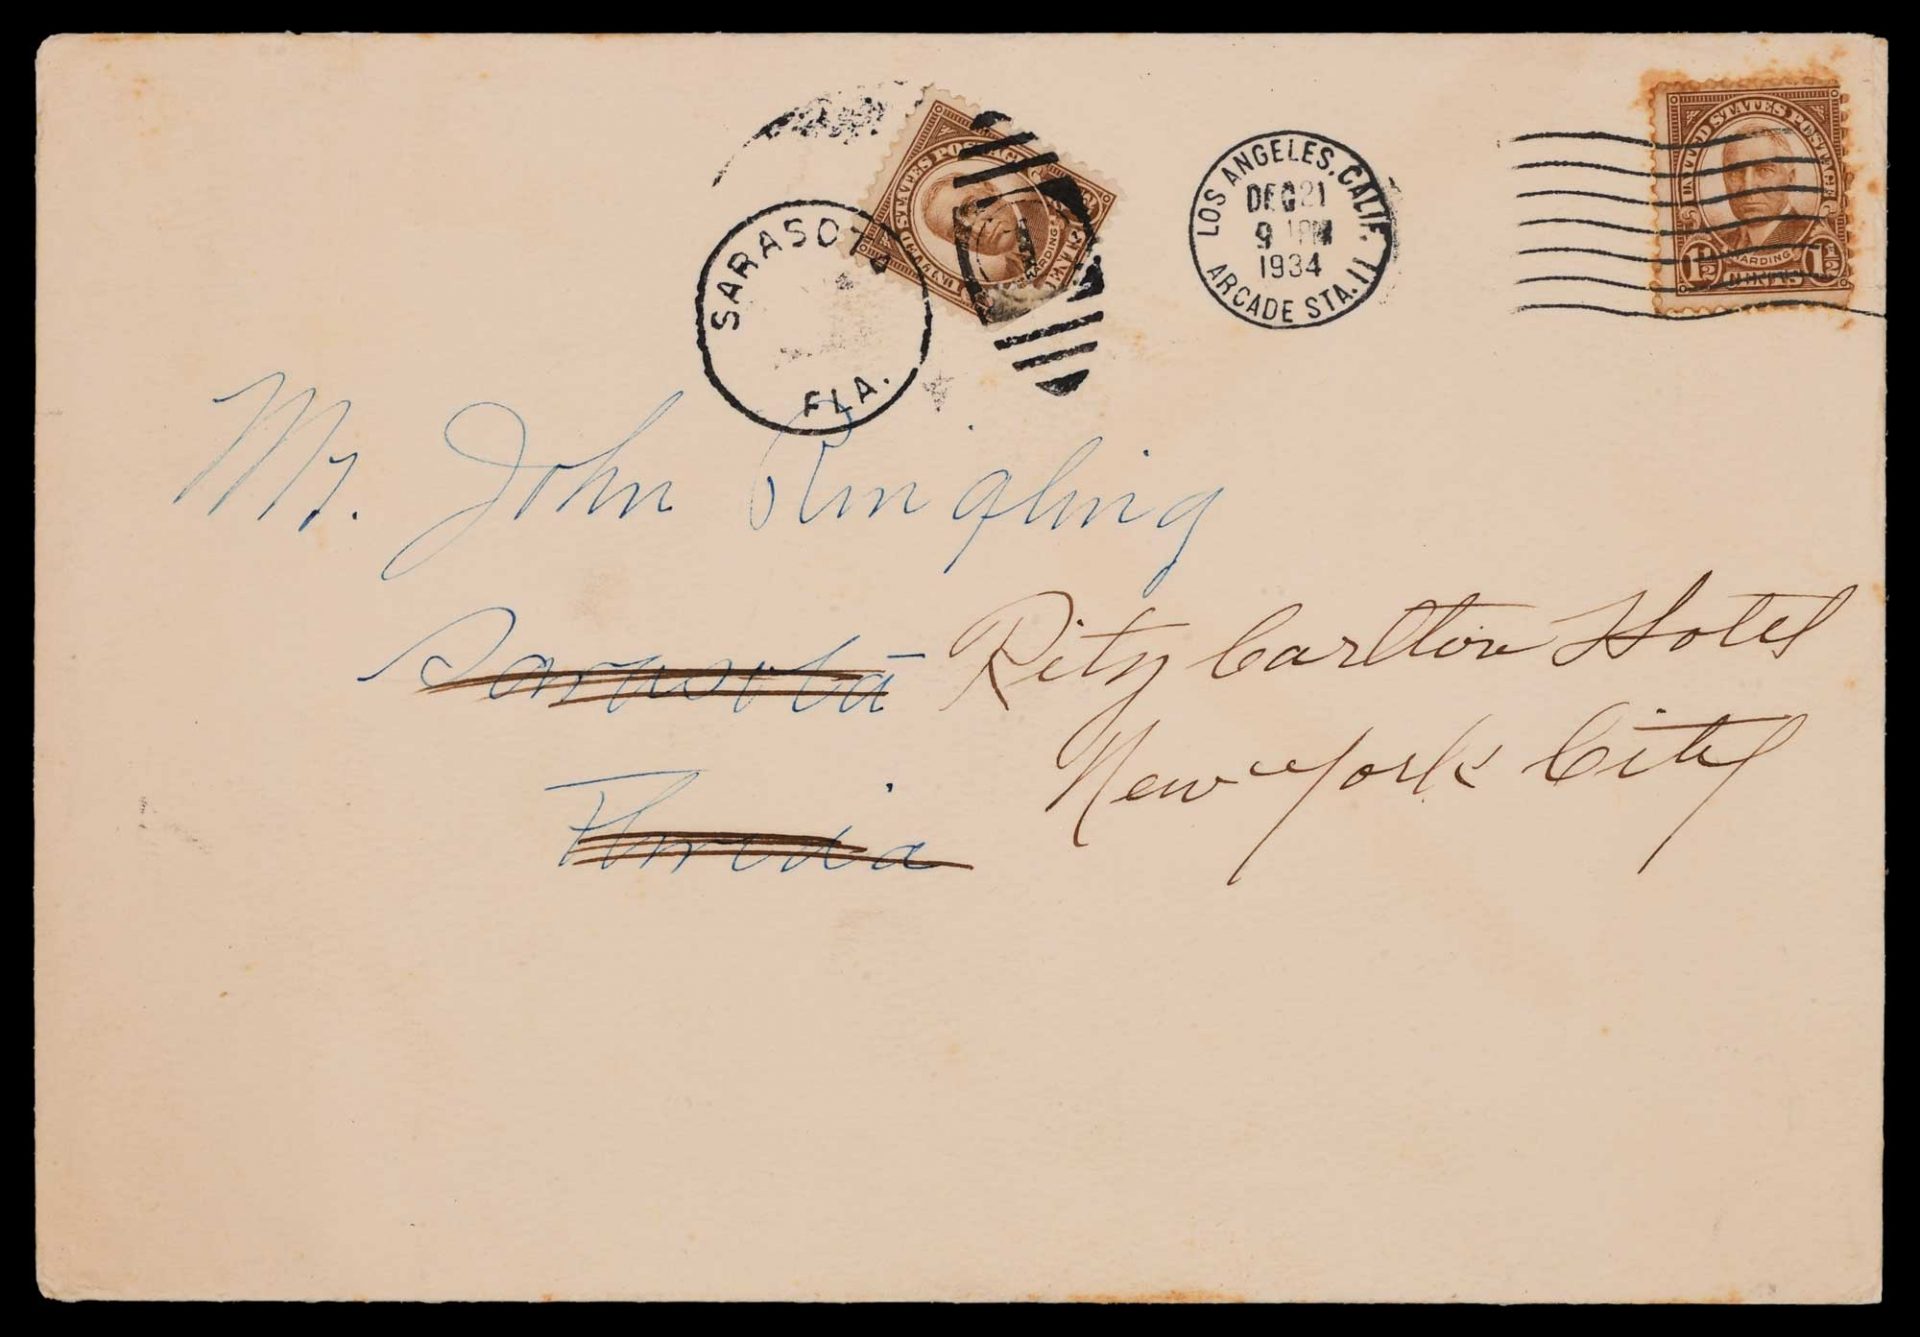 UNITED STATES POSTAGE
HARDING
SARASOTA
FLA.
LOS ANGELES, CALIF.
DEC 21
9
1934
ARCADE STA. 11
UNITED STATES POSTAGE
HARDING
1½ 1½
Mr. John Ringling
Sarasota
Florida
Ritz Carlton Hotel
New York City